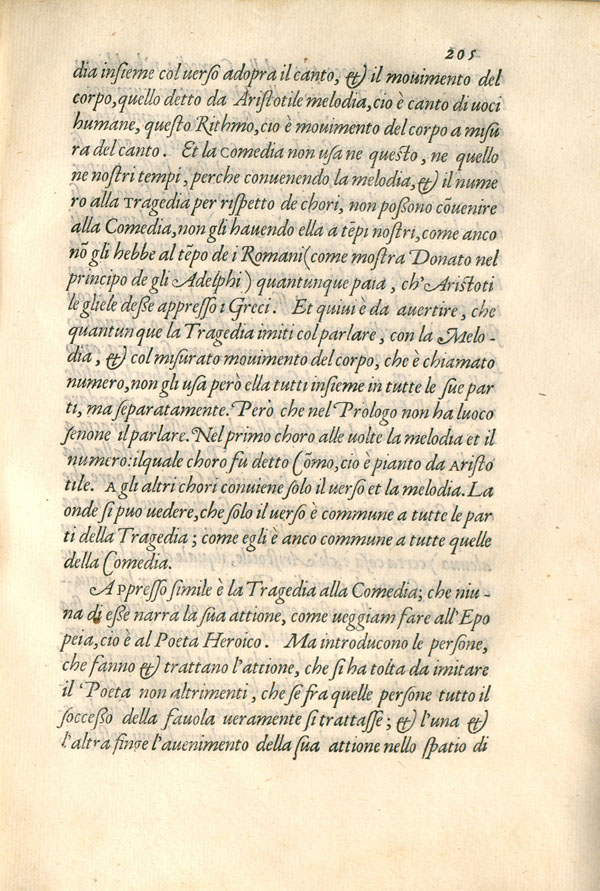 205
dia insieme col verso adopra il canto, & il mouimento del
corpo, quello detto da Aristotile melodia, cio è canto di uoci
humane, questo Rithmo, cio è mouimento del corpo a misu
ra del canto. Et la Comedia non usa ne questo, ne quello
ne nostri tempi, perche conuenendo la melodia, & il nume
ro alla Tragedia per rispetto de chori, non possono cõuenire
alla Comedia, non gli hauendo ella a tẽpi nostri, come anco
nõ gli hebbe al tẽpo de i Romani (come mostra Donato nel
principo de gli Adelphi) quantunque paia, ch'Aristoti
le gliele desse appresso i Greci. Et quiui è da auertire, che
quantunque la Tragedia imiti col parlare, con la Melo-
dia, & col misurato mouimento del corpo, che è chiamato
numero, non gli usa però ella tutti insieme in tutte le sue par
ti, ma separatamente. Però che nel Prologo non ha luoco
senone il parlare. Nel primo choro alle uolte la melodia et il
numero: ilquale choro fu detto Cõmo, cio è pianto da Aristo
tile. Agli altri chori conuiene solo il uerso et la melodia. La
onde si puo uedere, che solo il uerso è commune a tutte le par
ti della Tragedia; come egli è anco commune a tutte quelle
della Comedia.
Appresso simile è la Tragedia alla Comedia; che niu-
na di esse narra la sua attione, come ueggiam fare all'Epo
peia, cio è al Poeta Heroico. Ma introducono le persone,
che fanno & trattano l'attione, che si ha tolta da imitare
il Poeta non altrimenti, che se fra quelle persone tutto il
soccesso della fauola ueramente si trattasse; & l'una &
l'altra finge l'auenimento della sua attione nello spatio di